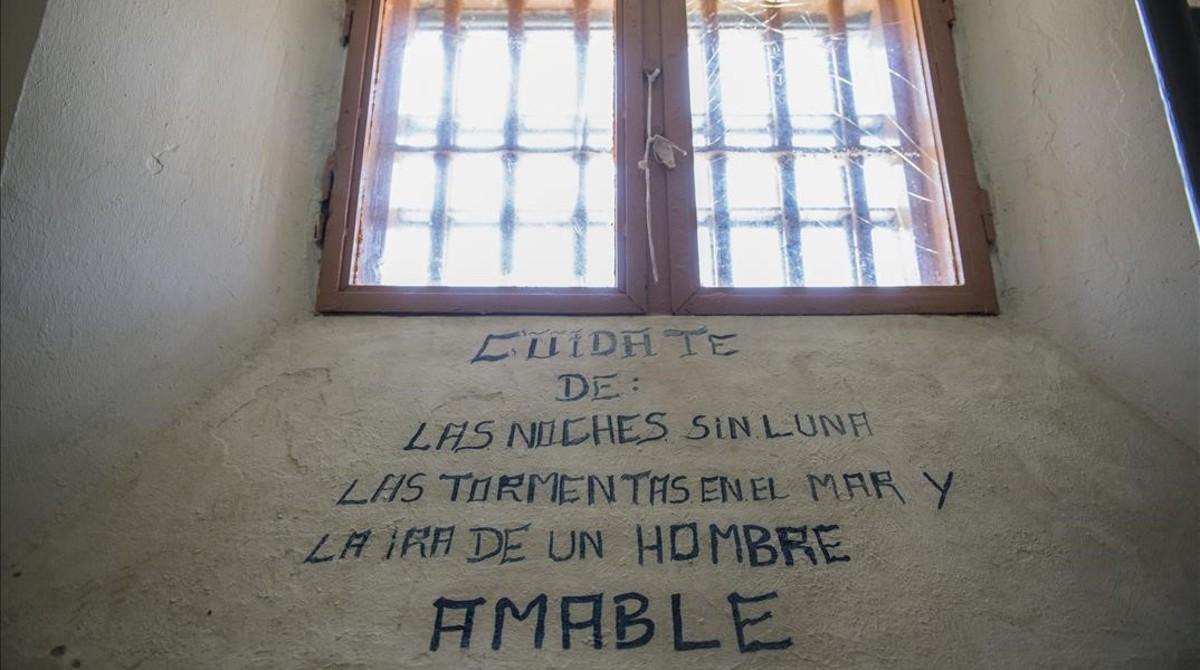 CUIDATE
DE:
LAS NOCHES SIN LUNA
LAS TORMENTAS EN EL MAR Y
LA IRA DE UN HOMBRE
AMABLE